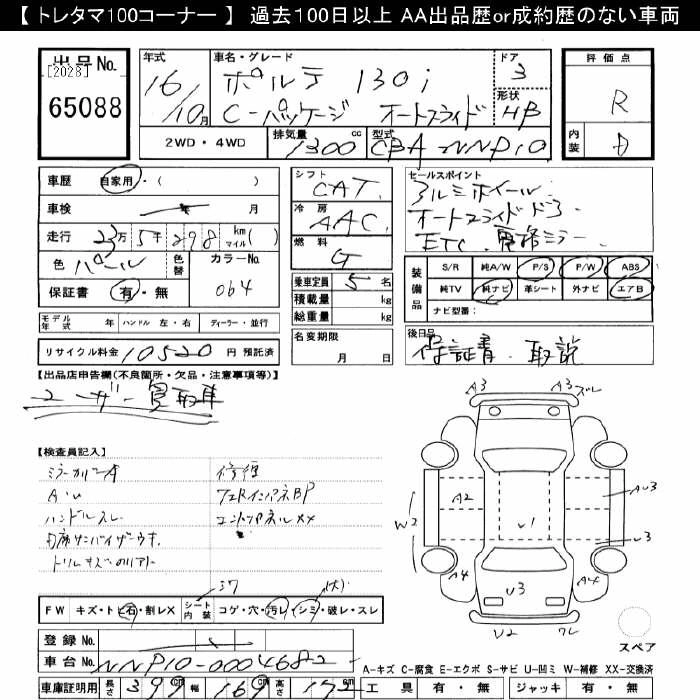 【 トレタマ100コーナー 】 過去100日以上 AA出品歴or成約歴のない車両
出品No. 年式 車名・グレード ドア 評価点
[2028] 16 ポルテ 130i 3 R
65088 10月 C-パッケージ オートスライド 形状 HB
2WD・4WD 排気量 1300 cc 型式 CBA NNP10 内装 D
車歴 自家用・( ) シフト CAT セールスポイント
車検 月 冷房 AAC アルミホイール
走行 23万5千298 km マイル ( ) 燃料 G オートスライドドア
ETC 電格ミラー
色 パール 色替 カラーNo. 064 乗車定員 5名
保証書 有・無 積載量 kg
総重量 kg
装備品 S/R 純A/W P/S P/W ABS
純TV 純ナビ 革シート 外ナビ エアB
ナビ型番:
モデル年式 年 ハンドル 左・右 ディーラー・並行
名変期限 月 日
後日品 保証書・取説
リサイクル料金 10520 円 預託済
【出品店申告欄(不良箇所・欠品・注意事項等)】
ユーザー買取車
【検査員記入】
ミラーカバーA 修復
AU FエRインナーパネBP
ハンドルスレ エンドパネルXX
内席サンバイザーウキ
A3 A3 スレ
A2 U1 U3
W2 U3
A4 U3 A4
U2 ワレ
スペア
FW キズ・トビ石・割レX シート内装 コゲ・穴・汚レ・シミ・破レ・スレ
登録 No.
車台 No. NNP10-0004682
A-キズ C-腐食 E-エクボ S-サビ U-凹ミ W-補修 XX-交換済
車庫証明用 長さ 399cm 幅 169cm 高さ 172cm 工具 有・無 ジャッキ 有・無